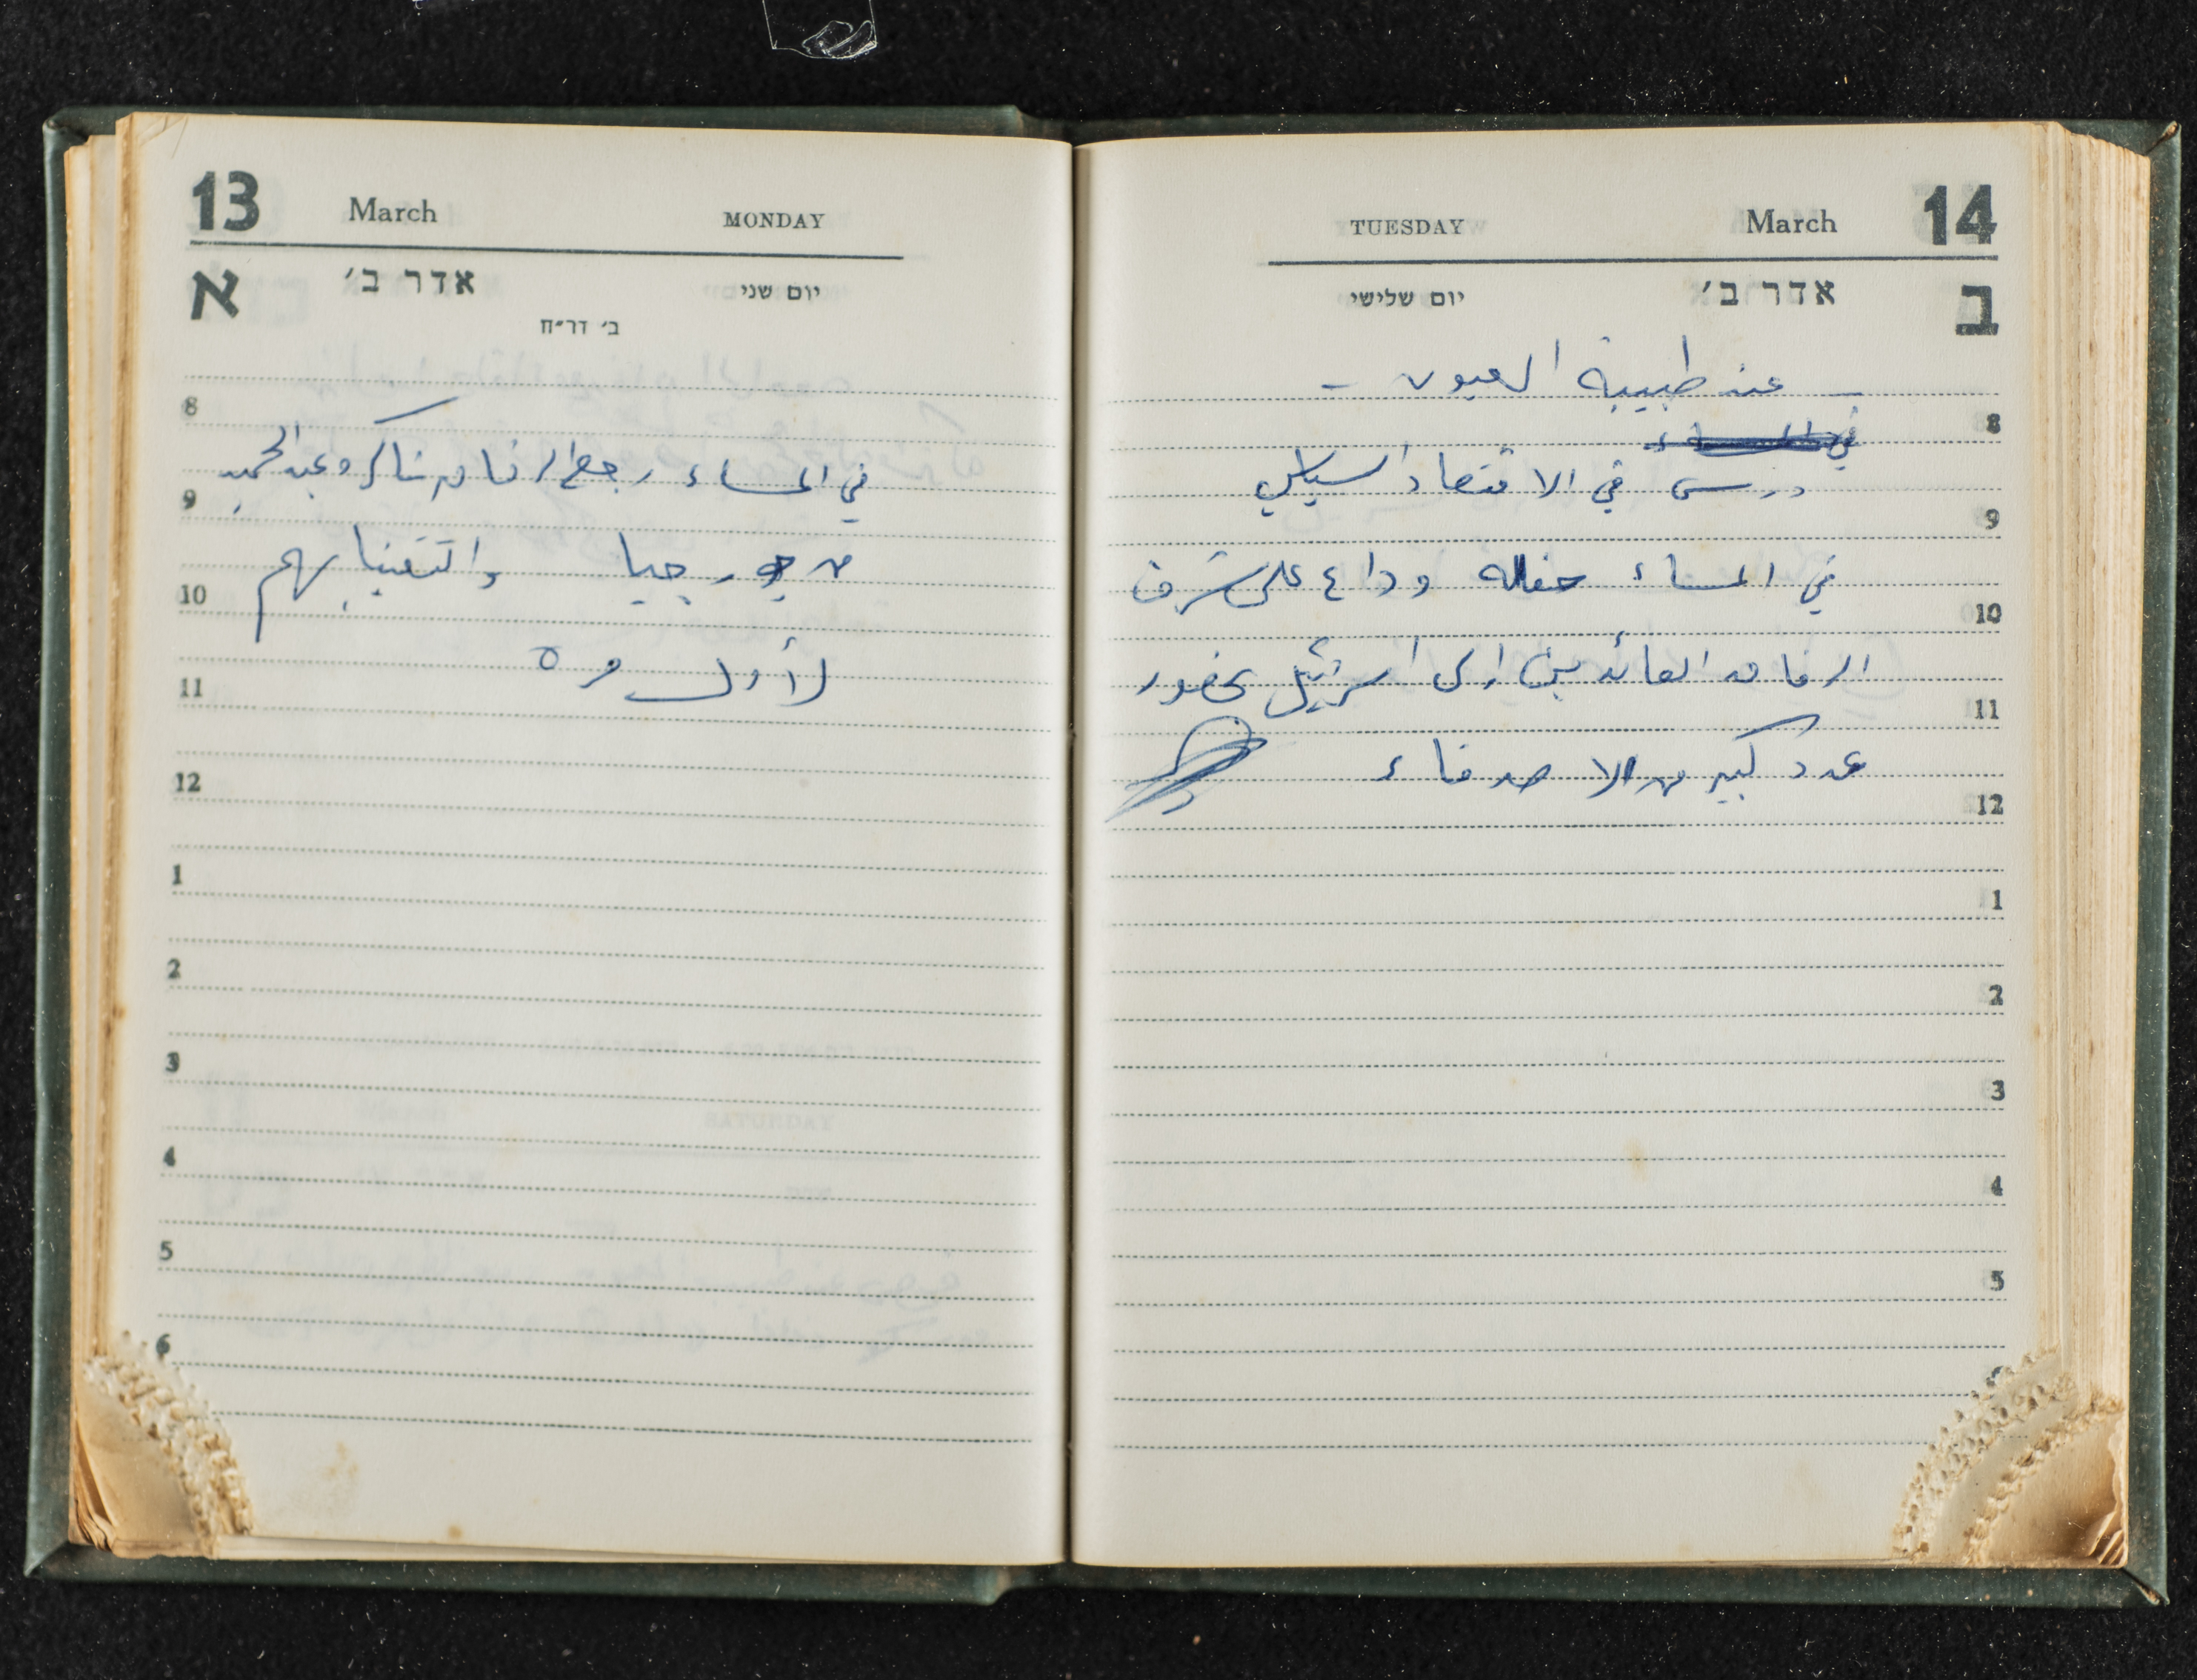 13 March MONDAY
א אדר ב׳ יום שני
ב׳ דר״ח
8
في المساء رجع الرفاق شاكر وعبد الحميد
9
من جورجيا والتقينا بهم
10
لأول مرة
11
12
1
2
3
4
5
6
TUESDAY March 14
יום שלישי אדר ב׳ ב
- عند طبيبة العيون -
8
في المساء
درس في الاقتصاد السياسي
9
في المساء حفلة وداع على شرف
10
الرفاق العائدين الى اسرائيل بحضور
11
عدد كبير من الاصدقاء
12
1
2
3
4
5